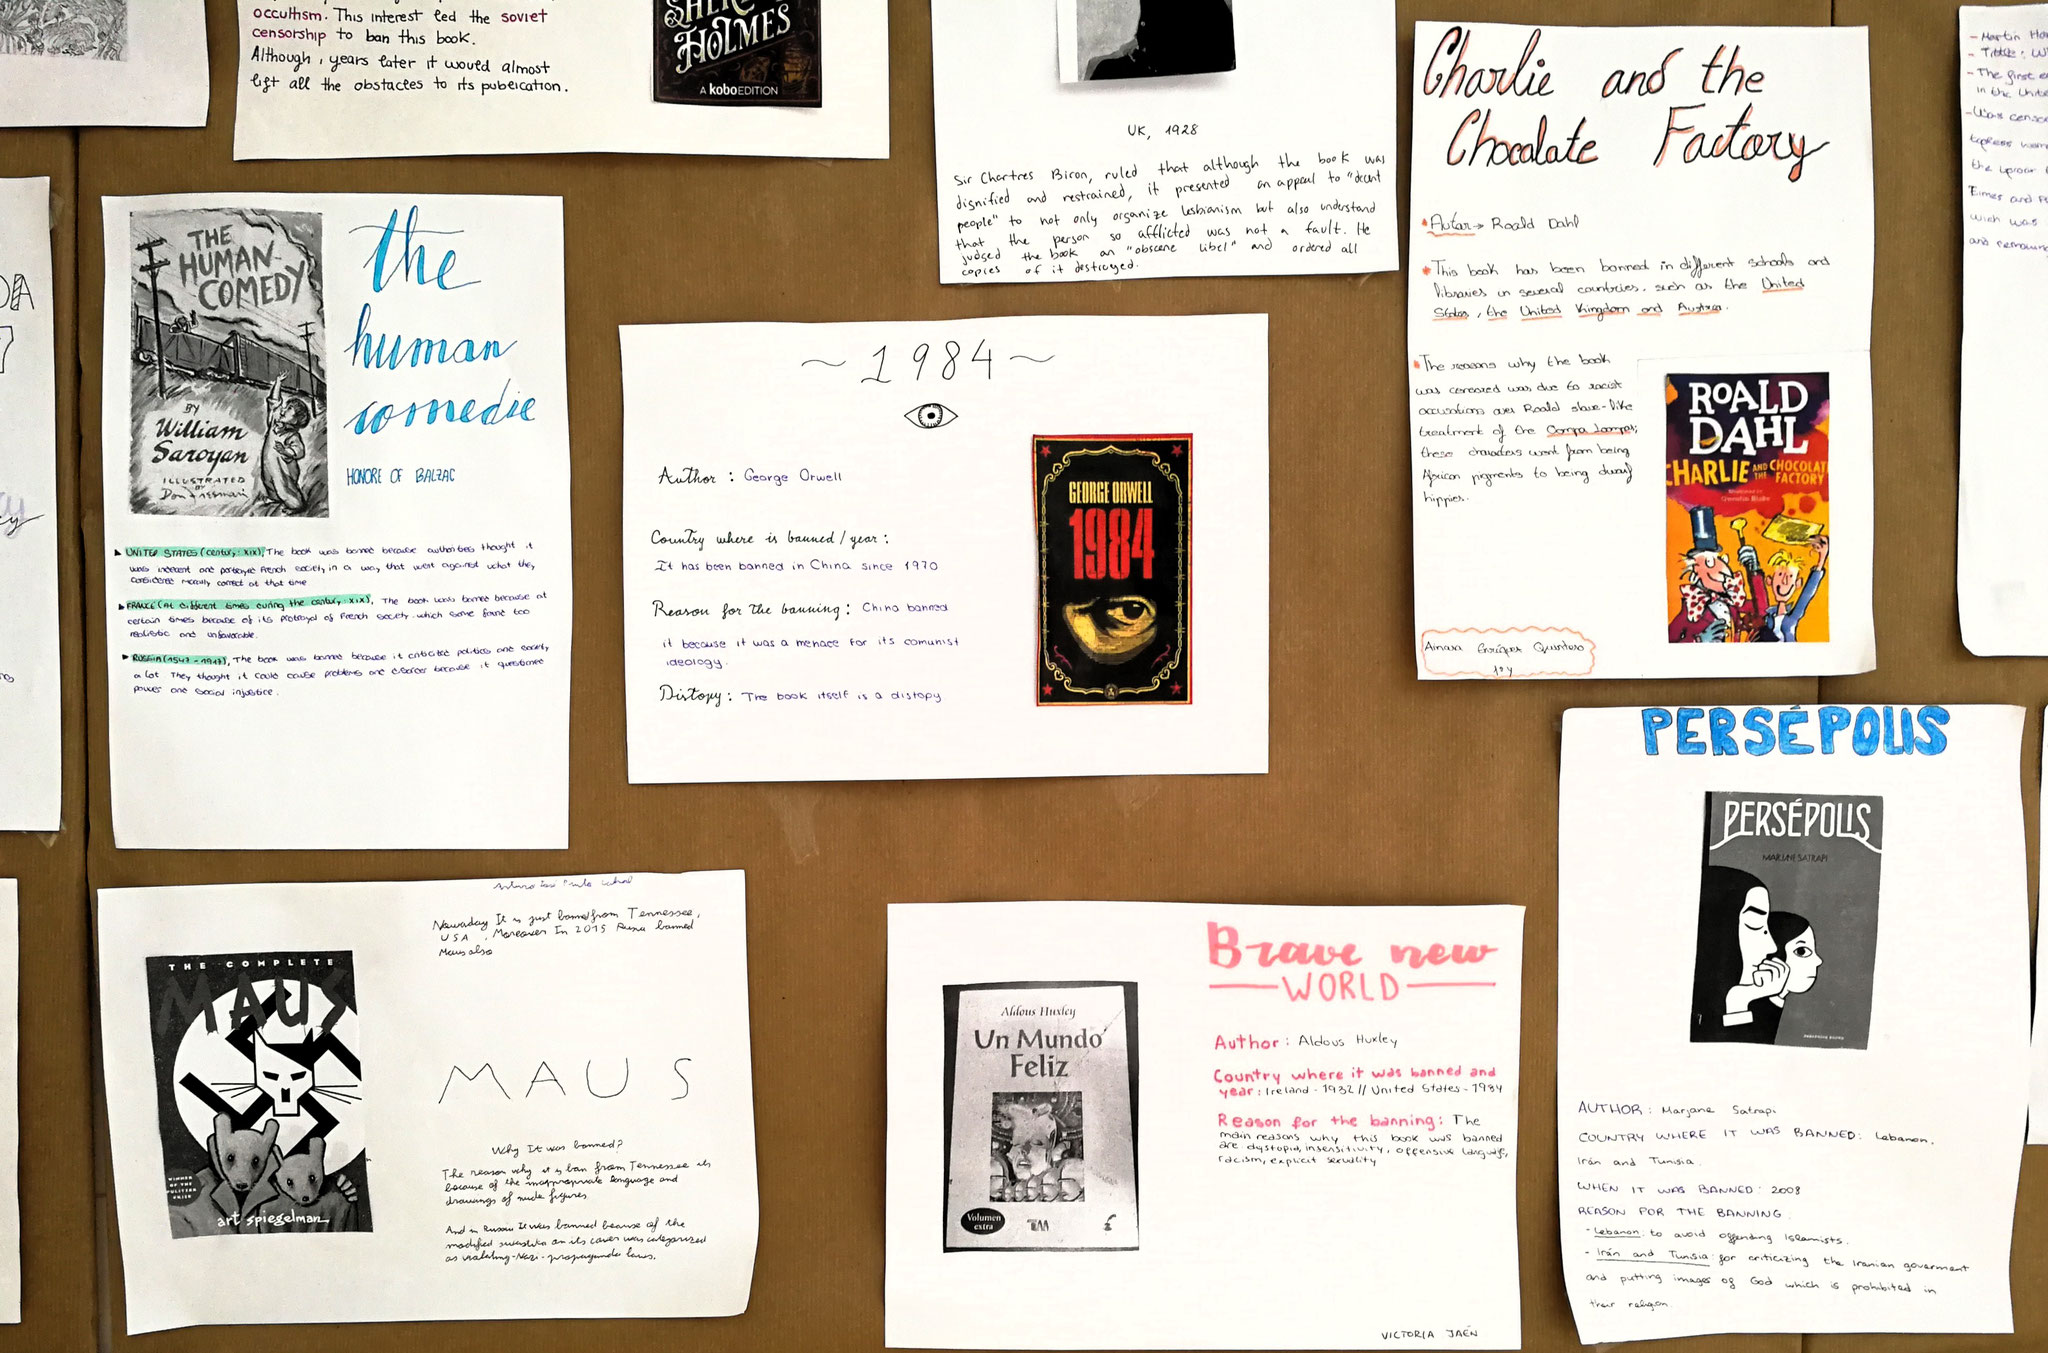 occultism. This interest led the soviet
censorship to ban this book.
Although, years later it would almost
lift all the obstacles to its publication.
SHERLOCK
HOLMES
A kobo EDITION
UK, 1928
Sir Chartres Biron, ruled that although the book was
dignified and restrained, it presented an appeal to "decent
people" to not only organize lesbianism but also understand
that the person so afflicted was not a fault. He
judged the book an "obscene libel" and ordered all
copies of it destroyed.
Charlie and the
Chocolate Factory
Autor → Roald Dahl
This book has been banned in different schools and
libraries in several countries, such as the United
States, the United Kingdom and Austria.
The reasons why the book
was censored was due to racist
accusations over Roald slave-like
treatment of the Oompa Loompas;
these characters went from being
African pigments to being dwarf
hippies.
ROALD
DAHL
CHARLIE AND THE CHOCOLATE
FACTORY
Quentin Blake
Ainara Enríquez Quintero
- Martin
- Title:
- The first
in the
- Was
THE
HUMAN
COMEDY
BY
William
Saroyan
ILLUSTRATED
BY
Don Freeman
the
human
comedie
HONORE OF BALZAC
UNITED STATES (century: XIX), The book was banned because authorities thought it
was indecent and portrayed French society in a way that went against what they
considered morally correct at that time
FRANCE (At different times during the century: XIX), The book was banned because at
certain times because of its portrayal of French society which some found too
realistic and unfavorable.
RUSSIA (1547-1917), The book was banned because it criticized politics and society
a lot. They thought it could cause problems and disorder because it questioned
power and social injustice.
~ 1984 ~
Author: George Orwell
Country where is banned/year:
It has been banned in China since 1970
Reason for the banning: China banned
it because it was a menace for its comunist
ideology.
Distopy: The book itself is a distopy
GEORGE ORWELL
1984
PERSÉPOLIS
PERSÉPOLIS
MARJANE SATRAPI
AUTHOR: Marjane Satrapi
COUNTRY WHERE IT WAS BANNED: Lebanon,
Irán and Tunisia.
WHEN IT WAS BANNED: 2008
REASON FOR THE BANNING:
- Lebanon: to avoid offending Islamists.
- Irán and Tunisia: for criticizing the Iranian goverment
and putting images of God which is prohibited in
their religion.
Nowaday It is just banned from Tennessee,
USA. Moreover In 2015 Rusia banned
Maus also
THE COMPLETE
MAUS
WINNER
OF THE
PULITZER
PRIZE
art spiegelman
MAUS
Why It was banned?
The reason why it is ban from Tennessee is
because of the inappropriate language and
drawings of nude figures
And in Russia It was banned because of the
modified swastika on its cover was categorized
as violating-Nazi-propaganda laws.
Brave new
WORLD
Aldous Huxley
Un Mundo
Feliz
Volumen
extra
Author: Aldous Huxley
Country where it was banned and
year: Ireland - 1932 // United States - 1984
Reason for the banning: The
main reasons why this book was banned
are dystopia, insensitivity, offensive language,
racism, explicit sexuality
VICTORIA JAÉN